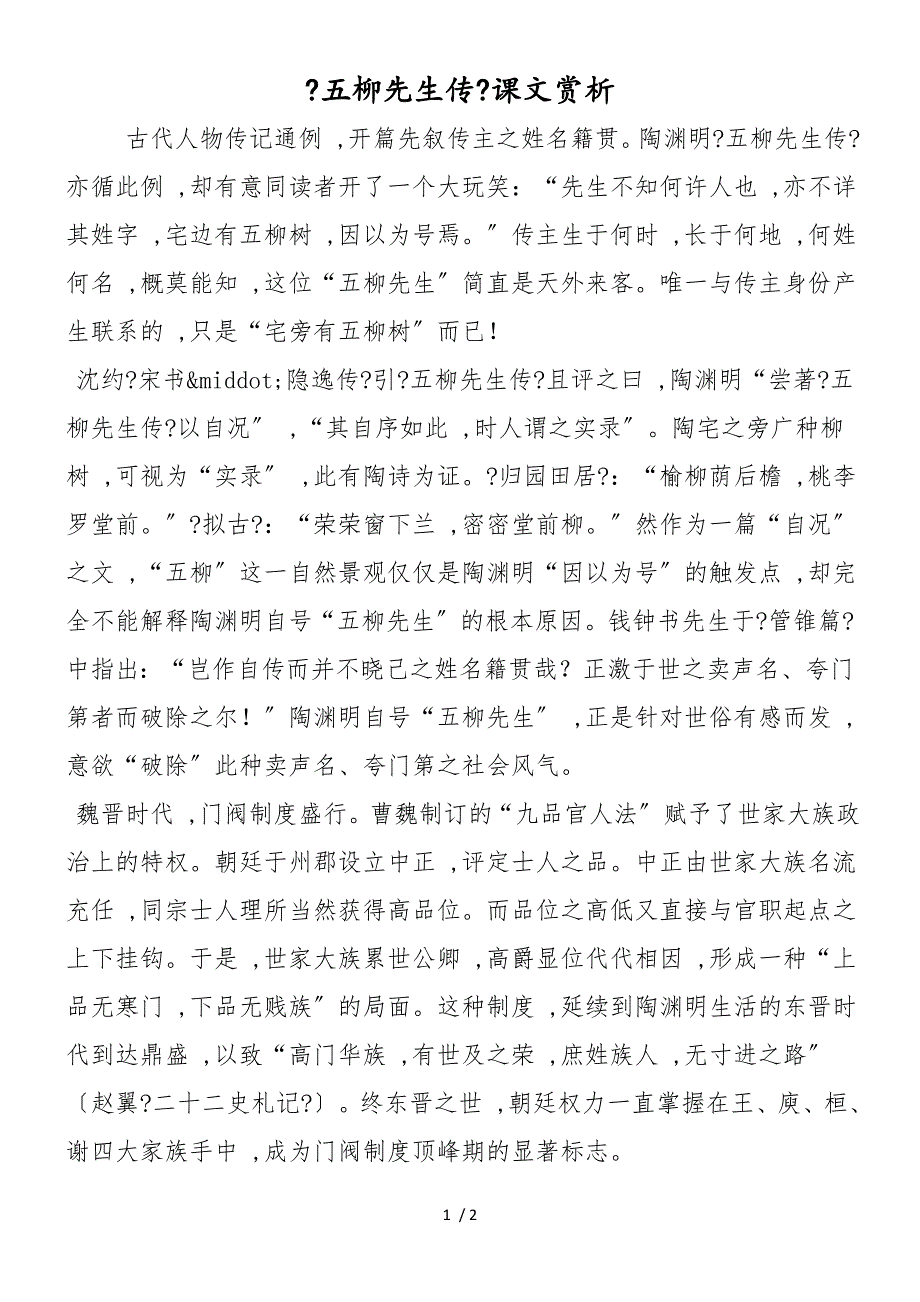 ?五柳先生传?课文赏析
古代人物传记通例 ,开篇先叙传主之姓名籍贯。陶渊明?五柳先生传?
亦循此例 ,却有意同读者开了一个大玩笑：“先生不知何许人也 ,亦不详
其姓字 ,宅边有五柳树 ,因以为号焉。〞传主生于何时 ,长于何地 ,何姓
何名 ,概莫能知 ,这位“五柳先生〞简直是天外来客。唯一与传主身份产
生联系的 ,只是“宅旁有五柳树〞而已！
沈约?宋书&middot;隐逸传?引?五柳先生传?且评之曰 ,陶渊明“尝著?五
柳先生传?以自况〞 ,“其自序如此 ,时人谓之实录〞。陶宅之旁广种柳
树 ,可视为“实录〞 ,此有陶诗为证。?归园田居?：“榆柳荫后檐 ,桃李
罗堂前。〞?拟古?：“荣荣窗下兰 ,密密堂前柳。〞然作为一篇“自况〞
之文 ,“五柳〞这一自然景观仅仅是陶渊明“因以为号〞的触发点 ,却完
全不能解释陶渊明自号“五柳先生〞的根本原因。钱钟书先生于?管锥篇?
中指出：“岂作自传而并不晓己之姓名籍贯哉？正激于世之卖声名、夸门
第者而破除之尔！〞陶渊明自号“五柳先生〞 ,正是针对世俗有感而发 ,
意欲“破除〞此种卖声名、夸门第之社会风气。
魏晋时代 ,门阀制度盛行。曹魏制订的“九品官人法〞赋予了世家大族政
治上的特权。朝廷于州郡设立中正 ,评定士人之品。中正由世家大族名流
充任 ,同宗士人理所当然获得高品位。而品位之高低又直接与官职起点之
上下挂钩。于是 ,世家大族累世公卿 ,高爵显位代代相因 ,形成一种“上
品无寒门 ,下品无贱族〞的局面。这种制度 ,延续到陶渊明生活的东晋时
代到达鼎盛 ,以致“高门华族 ,有世及之荣 ,庶姓族人 ,无寸进之路〞
〔赵翼?二十二史札记?〕。终东晋之世 ,朝廷权力一直掌握在王、庾、桓、
谢四大家族手中 ,成为门阀制度顶峰期的显著标志。
1 / 2